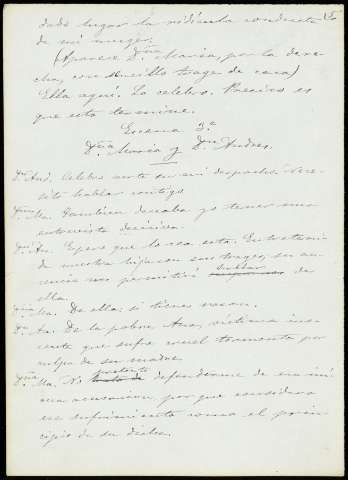 15
dado lugar la ridícula conducta
de mi muger.
(Aparece D.ña María, por la dere-
cha, con sencillo trage de casa)
Ella aquí. Lo celebro. Preciso es
que esto termine.
Escena 3.ª
D.ña María y D.n Andres.
D.n And. Celebro verte en mi despacho. Nece-
sito hablar contigo.
D.ña Ma. Tambien deseaba yo tener una
entrevista decisiva.
D.n An. Espero que lo sea esta.
de nuestra hija en sus trages, su au-
sencia nos permitirá hablar de
ella.
D.ña Ma. De ella; si tienes razon.
D.n An. De la pobre Ana, víctima ino-
cente que sufre cruel tormento por
culpa de su madre.
D.ña Ma. No pretendo defenderme de esa ini-
cua acusacion por que considero
ese sufrimiento como el prin-
cipio de su dicha.